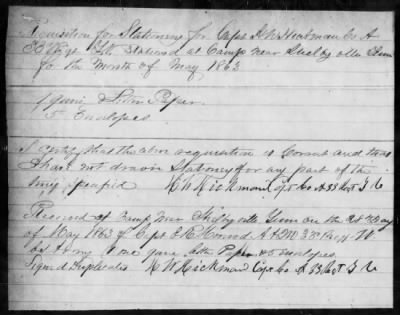 Requisition for Stationery for Capt Co A
33 Regt Stationed at Camp near Shelbyville Tenn
for the Month of May 1863
1 quire Paper
5 Envelopes
I certify that the above requisition is Correct and that
I have not drawn Stationery for any part of the
time specified H W Hickman Capt Co A 33 Regt
Received at Camp near Shelbyville Tenn on the day
of May 1863 of Capt A Q M 33 Regt
1 one quire Letter Paper & 5 envelopes
Signed Duplicates H W Hickman Capt Co A 33 Regt